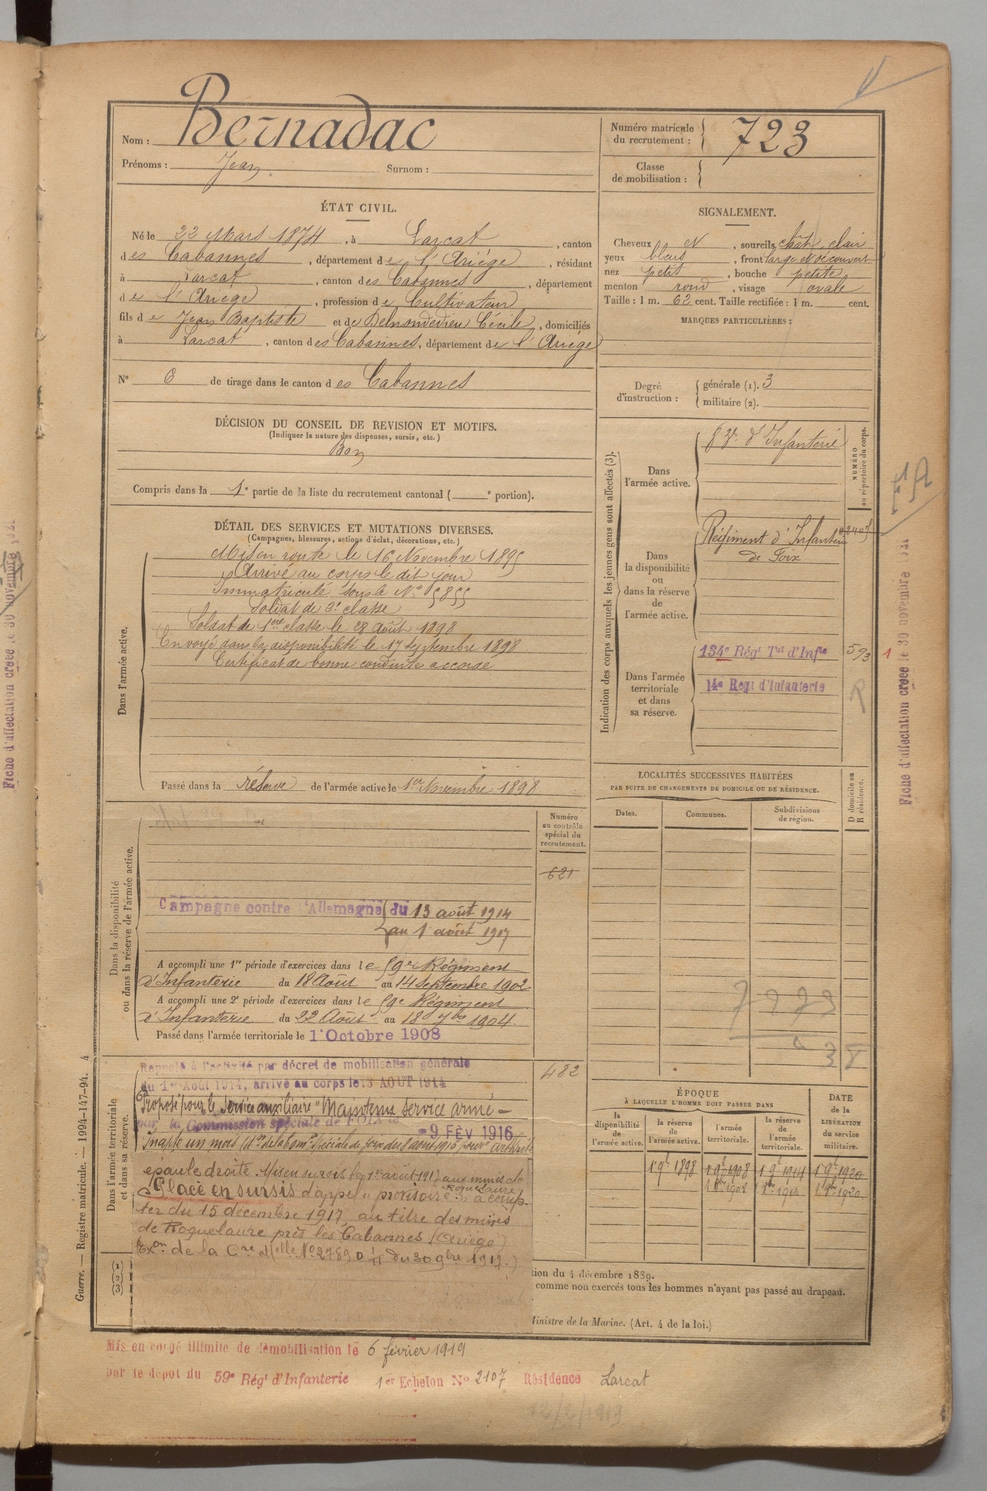 Nom : Bernadac
Prénoms : Jean Surnom :
Numéro matricule du recrutement : 723
Classe de mobilisation :
ÉTAT CIVIL.
Né le 22 Mars 1874, à Larcat, canton
des Cabannes, département de l'Ariège, résidant
à Larcat, canton des Cabannes, département
de l'Ariège, profession de Cultivateur
fils de Jean Baptiste et de Cécile, domiciliés
à Larcat, canton des Cabannes, département de l'Ariège
N° 6 de tirage dans le canton des Cabannes
SIGNALEMENT.
Cheveux N, sourcils chât. clair
yeux bleus, front large découvert
nez petit, bouche petite
menton rond, visage ovale
Taille : 1 m. 62 cent. Taille rectifiée : 1 m. cent.
MARQUES PARTICULIÈRES :
Degré d'instruction : générale (1). 3
militaire (2).
DÉCISION DU CONSEIL DE REVISION ET MOTIFS.
(Indiquer la nature des dispenses, sursis, etc.)
Bon
Compris dans la 1e partie de la liste du recrutement cantonal ( e portion).
DÉTAIL DES SERVICES ET MUTATIONS DIVERSES.
(Campagnes, blessures, actions d'éclat, décorations, etc.)
Dans l'armée active.
Mis en route le 16 Novembre 1895
Arrivé au corps le dit jour
Immatriculé sous le N° 5855
Soldat de 2e classe
Soldat de 1ère classe le 28 Août 1898
Envoyé dans la disponibilité le 17 Septembre 1898
Certificat de bonne conduite accordé
Passé dans la réserve de l'armée active le 1er Novembre 1898
Indication des corps auxquels les jeunes gens sont affectés (3).
NUMÉRO au répertoire du corps.
Dans l'armée active.
d'Infanterie
Dans la disponibilité ou dans la réserve de l'armée active.
Régiment d'Infanterie
de Foix
Dans l'armée territoriale et dans sa réserve.
134e Régt Tal d'Infie 593
14e Regt d'Infanterie R
LOCALITÉS SUCCESSIVES HABITÉES
PAR SUITE DE CHANGEMENTS DE DOMICILE OU DE RÉSIDENCE.
Dates. Communes. Subdivisions de région. D domicile ou R résidence.
Dans la disponibilité ou dans la réserve de l'armée active.
Numéro au contrôle spécial du recrutement.
621
Campagne contre l'Allemagne du 13 août 1914
au 1 août 1917
A accompli une 1re période d'exercices dans le 59e Régiment
d'Infanterie du 18 Août au 14 Septembre 1902
A accompli une 2e période d'exercices dans le 59e Régiment
d'Infanterie du 22 Août au 18 7bre 1904
Passé dans l'armée territoriale le 1er Octobre 1908
Dans l'armée territoriale et dans sa réserve.
482
Rappelé à l'activité par décret de mobilisation générale
du 1er Août 1914, arrivé au corps le 3 AOUT 1914
Proposé pour le service auxiliaire "Maintenu service armé"
par la Commission spéciale de FOIX le 9 FÉV 1916
épaule droite. Mis en sursis le 1er août 1917 aux mines de Roquelaure
Placé en sursis d'appel provisoire à comp-
ter du 15 décembre 1917, au titre des mines
de Roquelaure près les Cabannes (Ariège)
ÉPOQUE
À LAQUELLE L'HOMME DOIT PASSER DANS
la disponibilité de l'armée active. la réserve de l'armée active. l'armée territoriale. la réserve de l'armée territoriale.
DATE de la LIBÉRATION du service militaire.
1 9bre 1898 1 9bre 1908 1 9bre 1914 1 9bre 1920
tion du 4 décembre 1889.
comme non exercés tous les hommes n'ayant pas passé au drapeau.
Ministre de la Marine. (Art. 4 de la loi.)
(1)
(2)
(3)
Mis en congé illimité de démobilisation le 6 février 1919
par le dépôt du 59e Régt d'Infanterie 1er Echelon N° 2107 Résidence Larcat
12/2/1919
Guerre. — Registre matricule. — 1994-147-94. 4
Fiche d'affectation créée le 30 novembre
Fiche d'affectation créée le 30 novembre